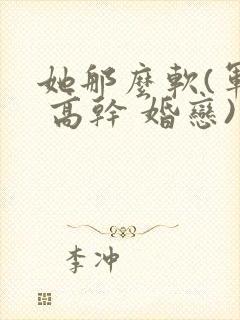 她那麼軟(軍
高幹 婚戀)
李冲